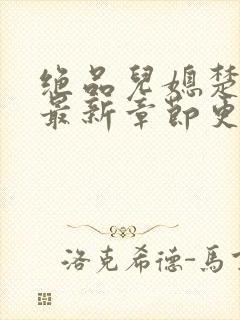 绝品兒媳楚
最新章節更
洛克希德-馬丁